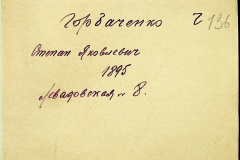 Горбаченко Г 136
Степан Яковлевич
1895
Левадовская № 8.